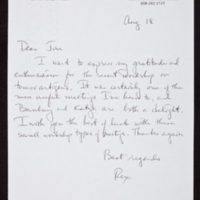 Aug 18
Dear Jim
I want to express my gratitude and
enthusiasm for the recent workshop on
tumor antigens. It was certainly one of the
most useful meetings I've been to, and
Banbury and are both a delight.
I wish you the best of luck with these
small workshop types of meetings. Thanks again
Best regards
Rex